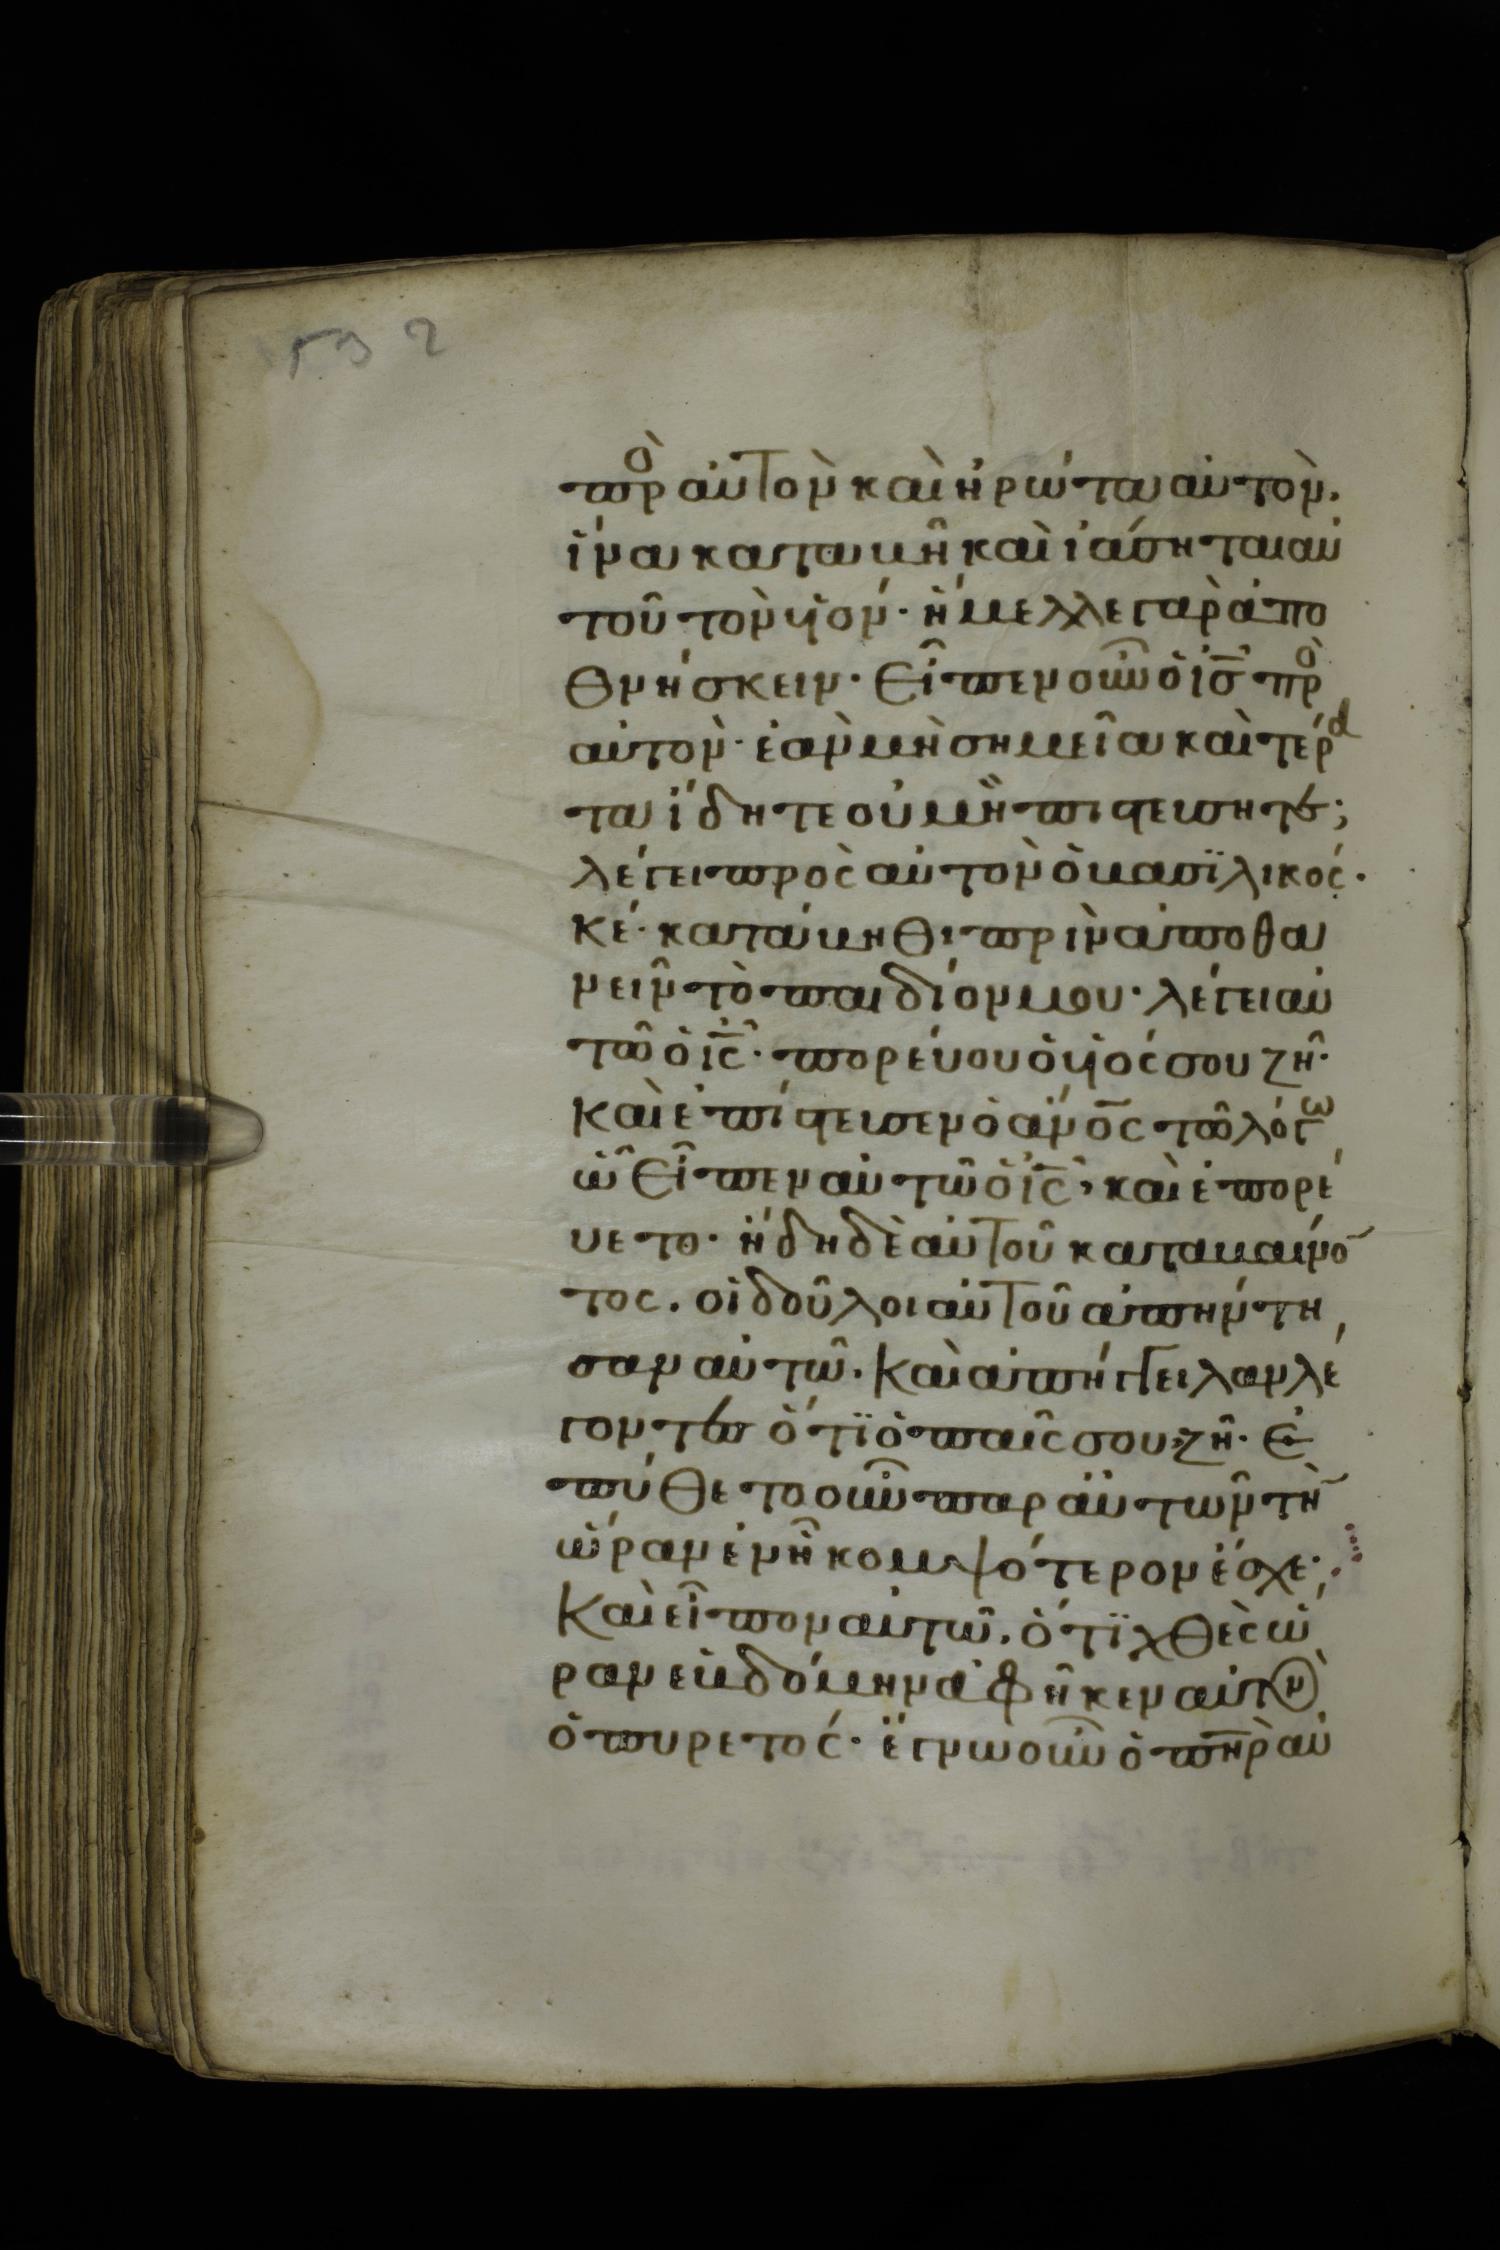 πρ̀ο αὐτὸν καὶ ἠρώτα αὐτὸν.
ἵνα καταβῆ καὶ ἰάσηται αὐ
τοῦ τὸν ϋἱόν· ἤμελλε γὰρ ἀπο
θνήσκειν· Εἶπεν οὖν ὁ ἰσ̅ πρὸ
αὐτὸν· ἐὰν μὴ σημεῖα καὶ τέρα
τα ἴδητε οὐ μὴ πιστευσητε;
λέγει πρὸς αὐτὸν ὁ βασϊλικός·
κέ· κατάβηθι πρὶν ἀποθα
νεῖν τὸ παιδίον μου· λέγει αὐ
τῶ ὁ ἰς̅· πορεύου ὁ ϋἱός σου ζῆ·
Καὶ ἐπίστευσεν ὁ ἄνο̅ς τῶ λόγω
ὧ Εἶπεν αὐτῶ ὁ ἰς̅, καὶ ἐπορέ
υετο· ἤδη δὲ αὐτοῦ καταβαίνο
τος. οἱ δοῦλοι αὐτοῦ ἀπήντη
σαν αὐτῶ. Καὶ ἀπήγγειλαν λέ
γοντες ὅτϊ ὁ παῖς σου ζῆ· Ἐ
πύθετο οὖν παρ αὐτῶν τὴ
ὥραν ἐν ἧ κομψότερον ἔσχε·
Καὶ εἶπον αὐτῶ. ὅτϊ χθὲς ὥ
ραν ἑβδόμην ἀφῆκεν αὐτὸν
ὁ πυρετός· ἔγνω οὖν ὁ πη̅ρ αὐ